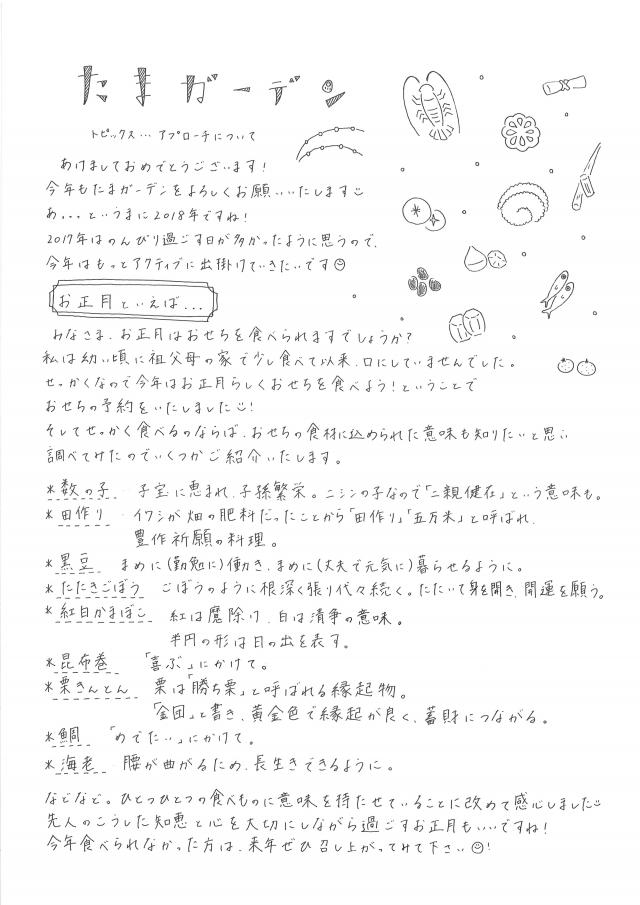 たまガーデン
トピックス… アプローチについて
あけましておめでとうございます！
今年もたまガーデンをよろしくお願いいたします
あ...というまに2018年ですね！
2017年はのんびり過ごす日が多かったように思うので、
今年はもっとアクティブに出掛けていきたいです
お正月といえば...
みなさま、お正月はおせちを食べられますでしょうか？
私は幼い頃に祖父母の家で少し食べて以来、口にしていませんでした。
せっかくなので今年はお正月らしくおせちを食べよう！ということで
おせちの予約をいたしました！
そしてせっかく食べるのならば、おせちの食材に込められた意味も知りたいと思い
調べてみたのでいくつかご紹介いたします。
*数の子 子宝に恵まれ、子孫繁栄。ニシンの子なので「二親健在」という意味も。
*田作り イワシが畑の肥料だったことから「田作り」「五万米」と呼ばれ、
豊作祈願の料理。
*黒豆 まめに(勤勉に)働き、まめに(丈夫で元気に)暮らせるように。
*たたきごぼう ごぼうのように根深く張り代々続く。たたいて身を開き、開運を願う。
*紅白かまぼこ 紅は魔除け、白は清浄の意味。
半円の形は日の出を表す。
*昆布巻 「喜ぶ」にかけて。
*栗きんとん 栗は「勝ち栗」と呼ばれる縁起物。
「金団」と書き、黄金色で縁起が良く、蓄財につながる。
*鯛 「めでたい」にかけて。
*海老 腰が曲がるため、長生きできるように。
などなど。ひとつひとつの食べものに意味を持たせていることに改めて感心しました
先人のこうした知恵と心を大切にしながら過ごすお正月もいいですね！
今年食べられなかった方は、来年ぜひ召し上がってみて下さい！